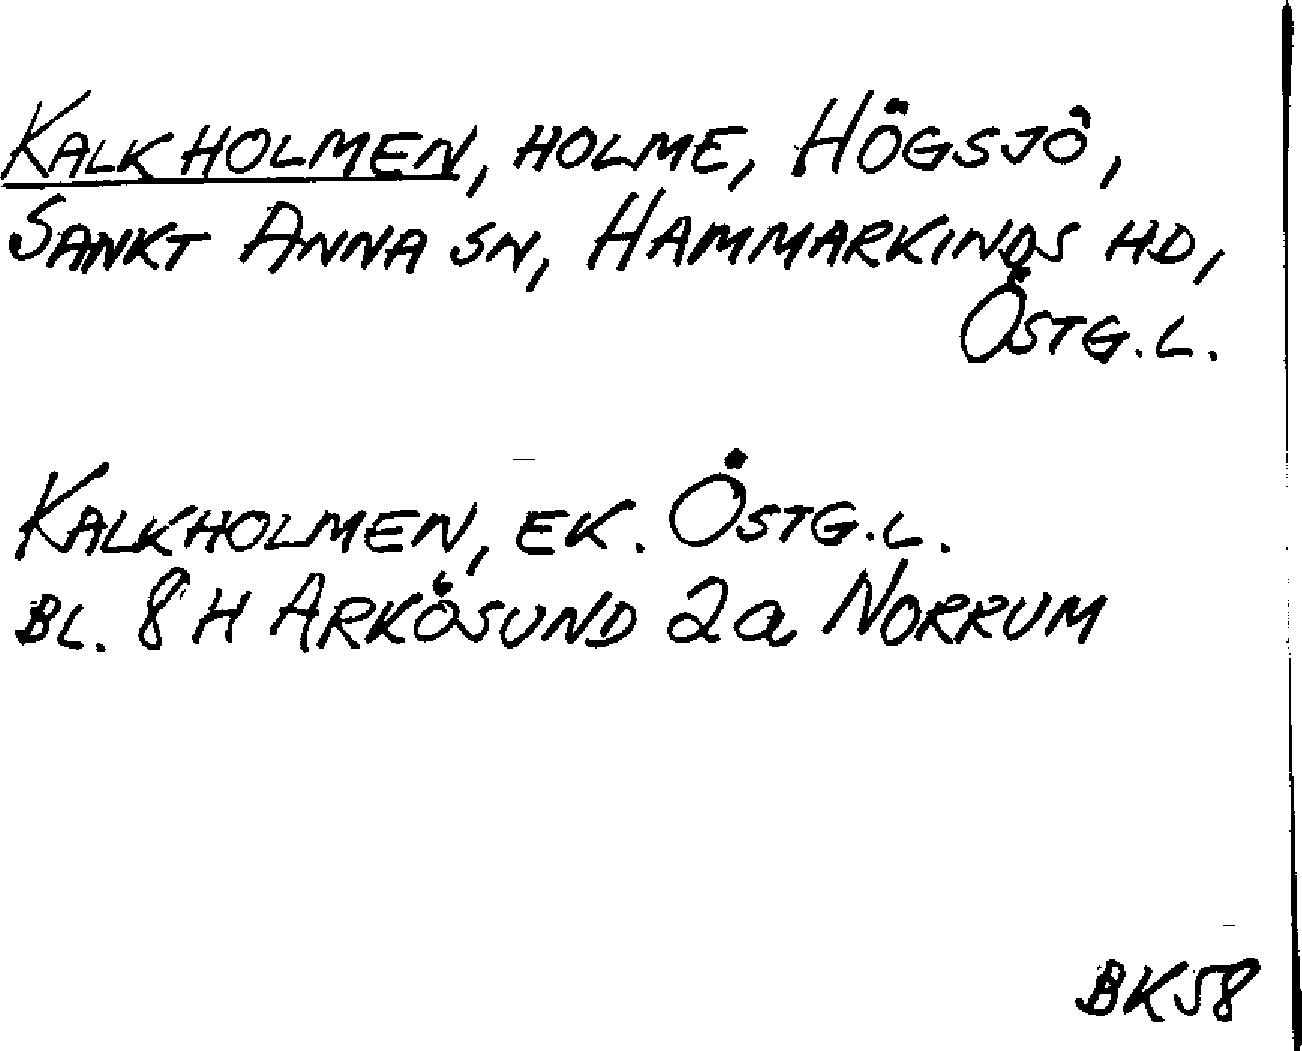 KALKHOLMEN, HOLME, HÖGSJÖ,
SANKT ANNA SN, HAMMARKINDS HD,
ÖSTG.L.
KALKHOLMEN, EK. ÖSTG.L.
BL. 8 H ARKÖSUND 2a NORRUM
BK58